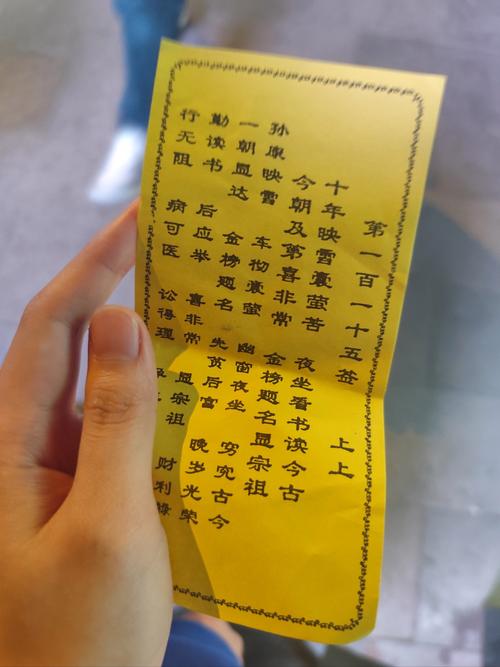 第一百一十五签 上上
十年映雪囊萤苦 夜坐看书读今古
今朝及第喜非常 金榜题名显宗祖
孙康映雪 车彻囊萤 幽窗夜坐 穷究古今
一朝显达 金榜题名 先贫后富 晚岁光荣
勤读书 后应举 喜非常 显宗祖
行无阻 病可医 讼得理 财利